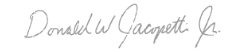 Donald W Jacopetti Jr.